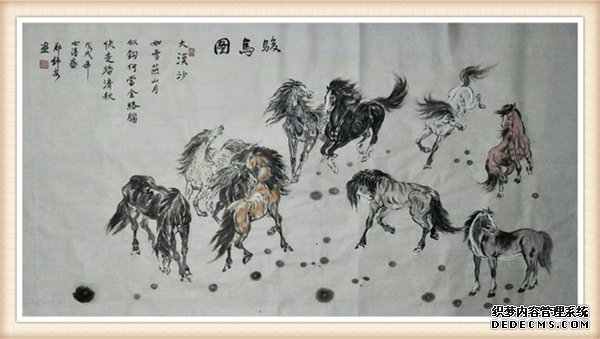 駿馬圖
大漠沙
如雪燕山月
似鈎何當金絡腦
快走踏清秋
戊戌年
织梦内容管理系统
DEDECMS.COM